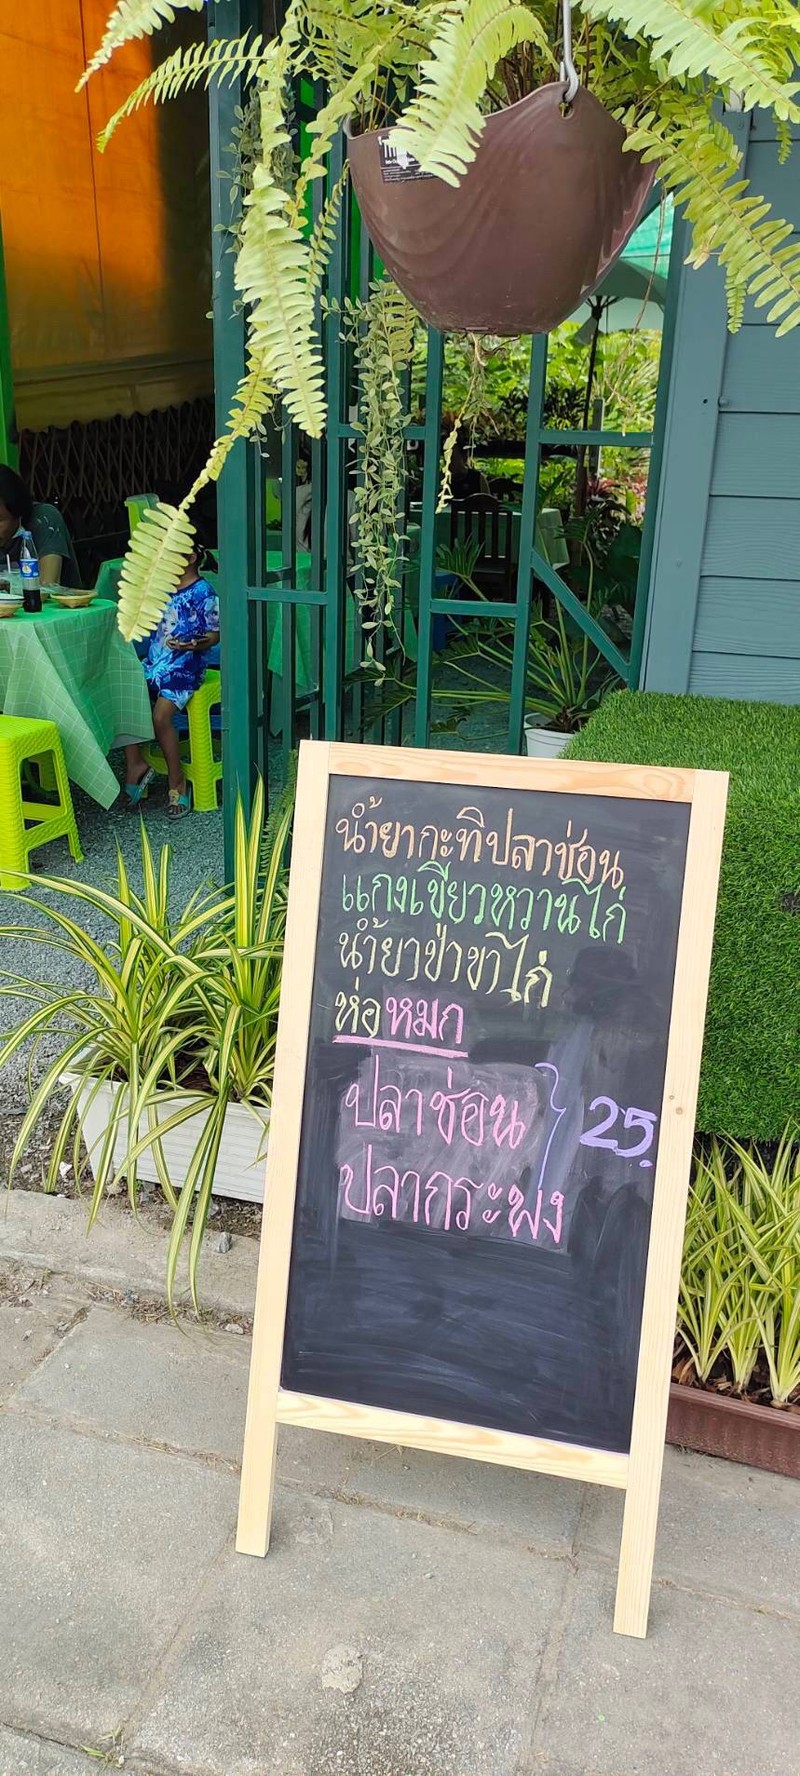 น้ำยากะทิปลาช่อน
แกงเขียวหวานไก่
น้ำยาป่าขาไก่
ห่อหมก
ปลาช่อน } 25.
ปลากระพง